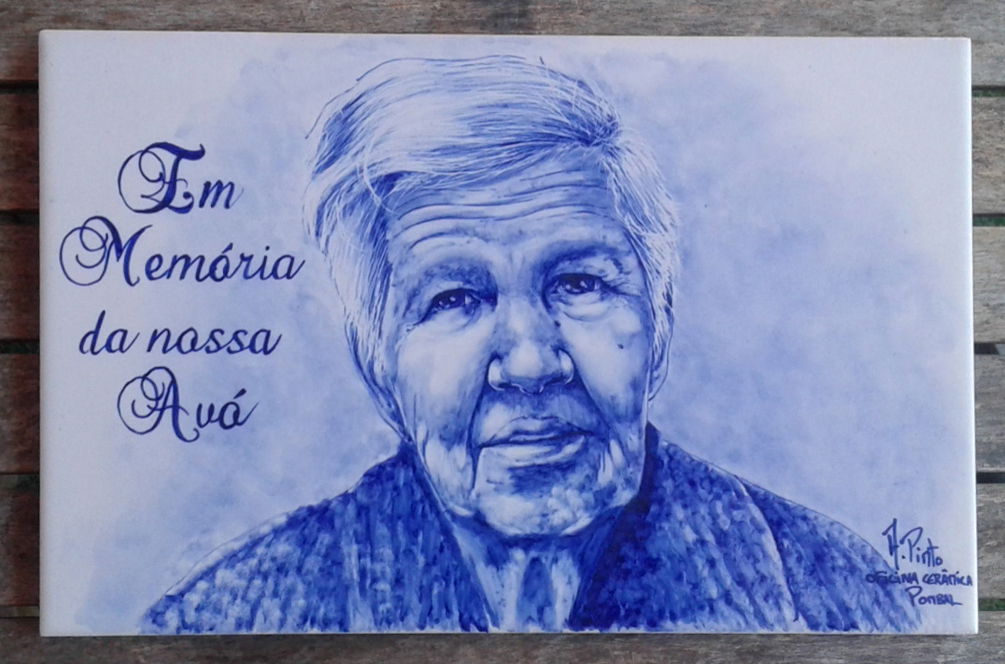 Em
Memória
da nossa
Avó
A. Pinto
OFICINA CERÂMICA
POMBAL